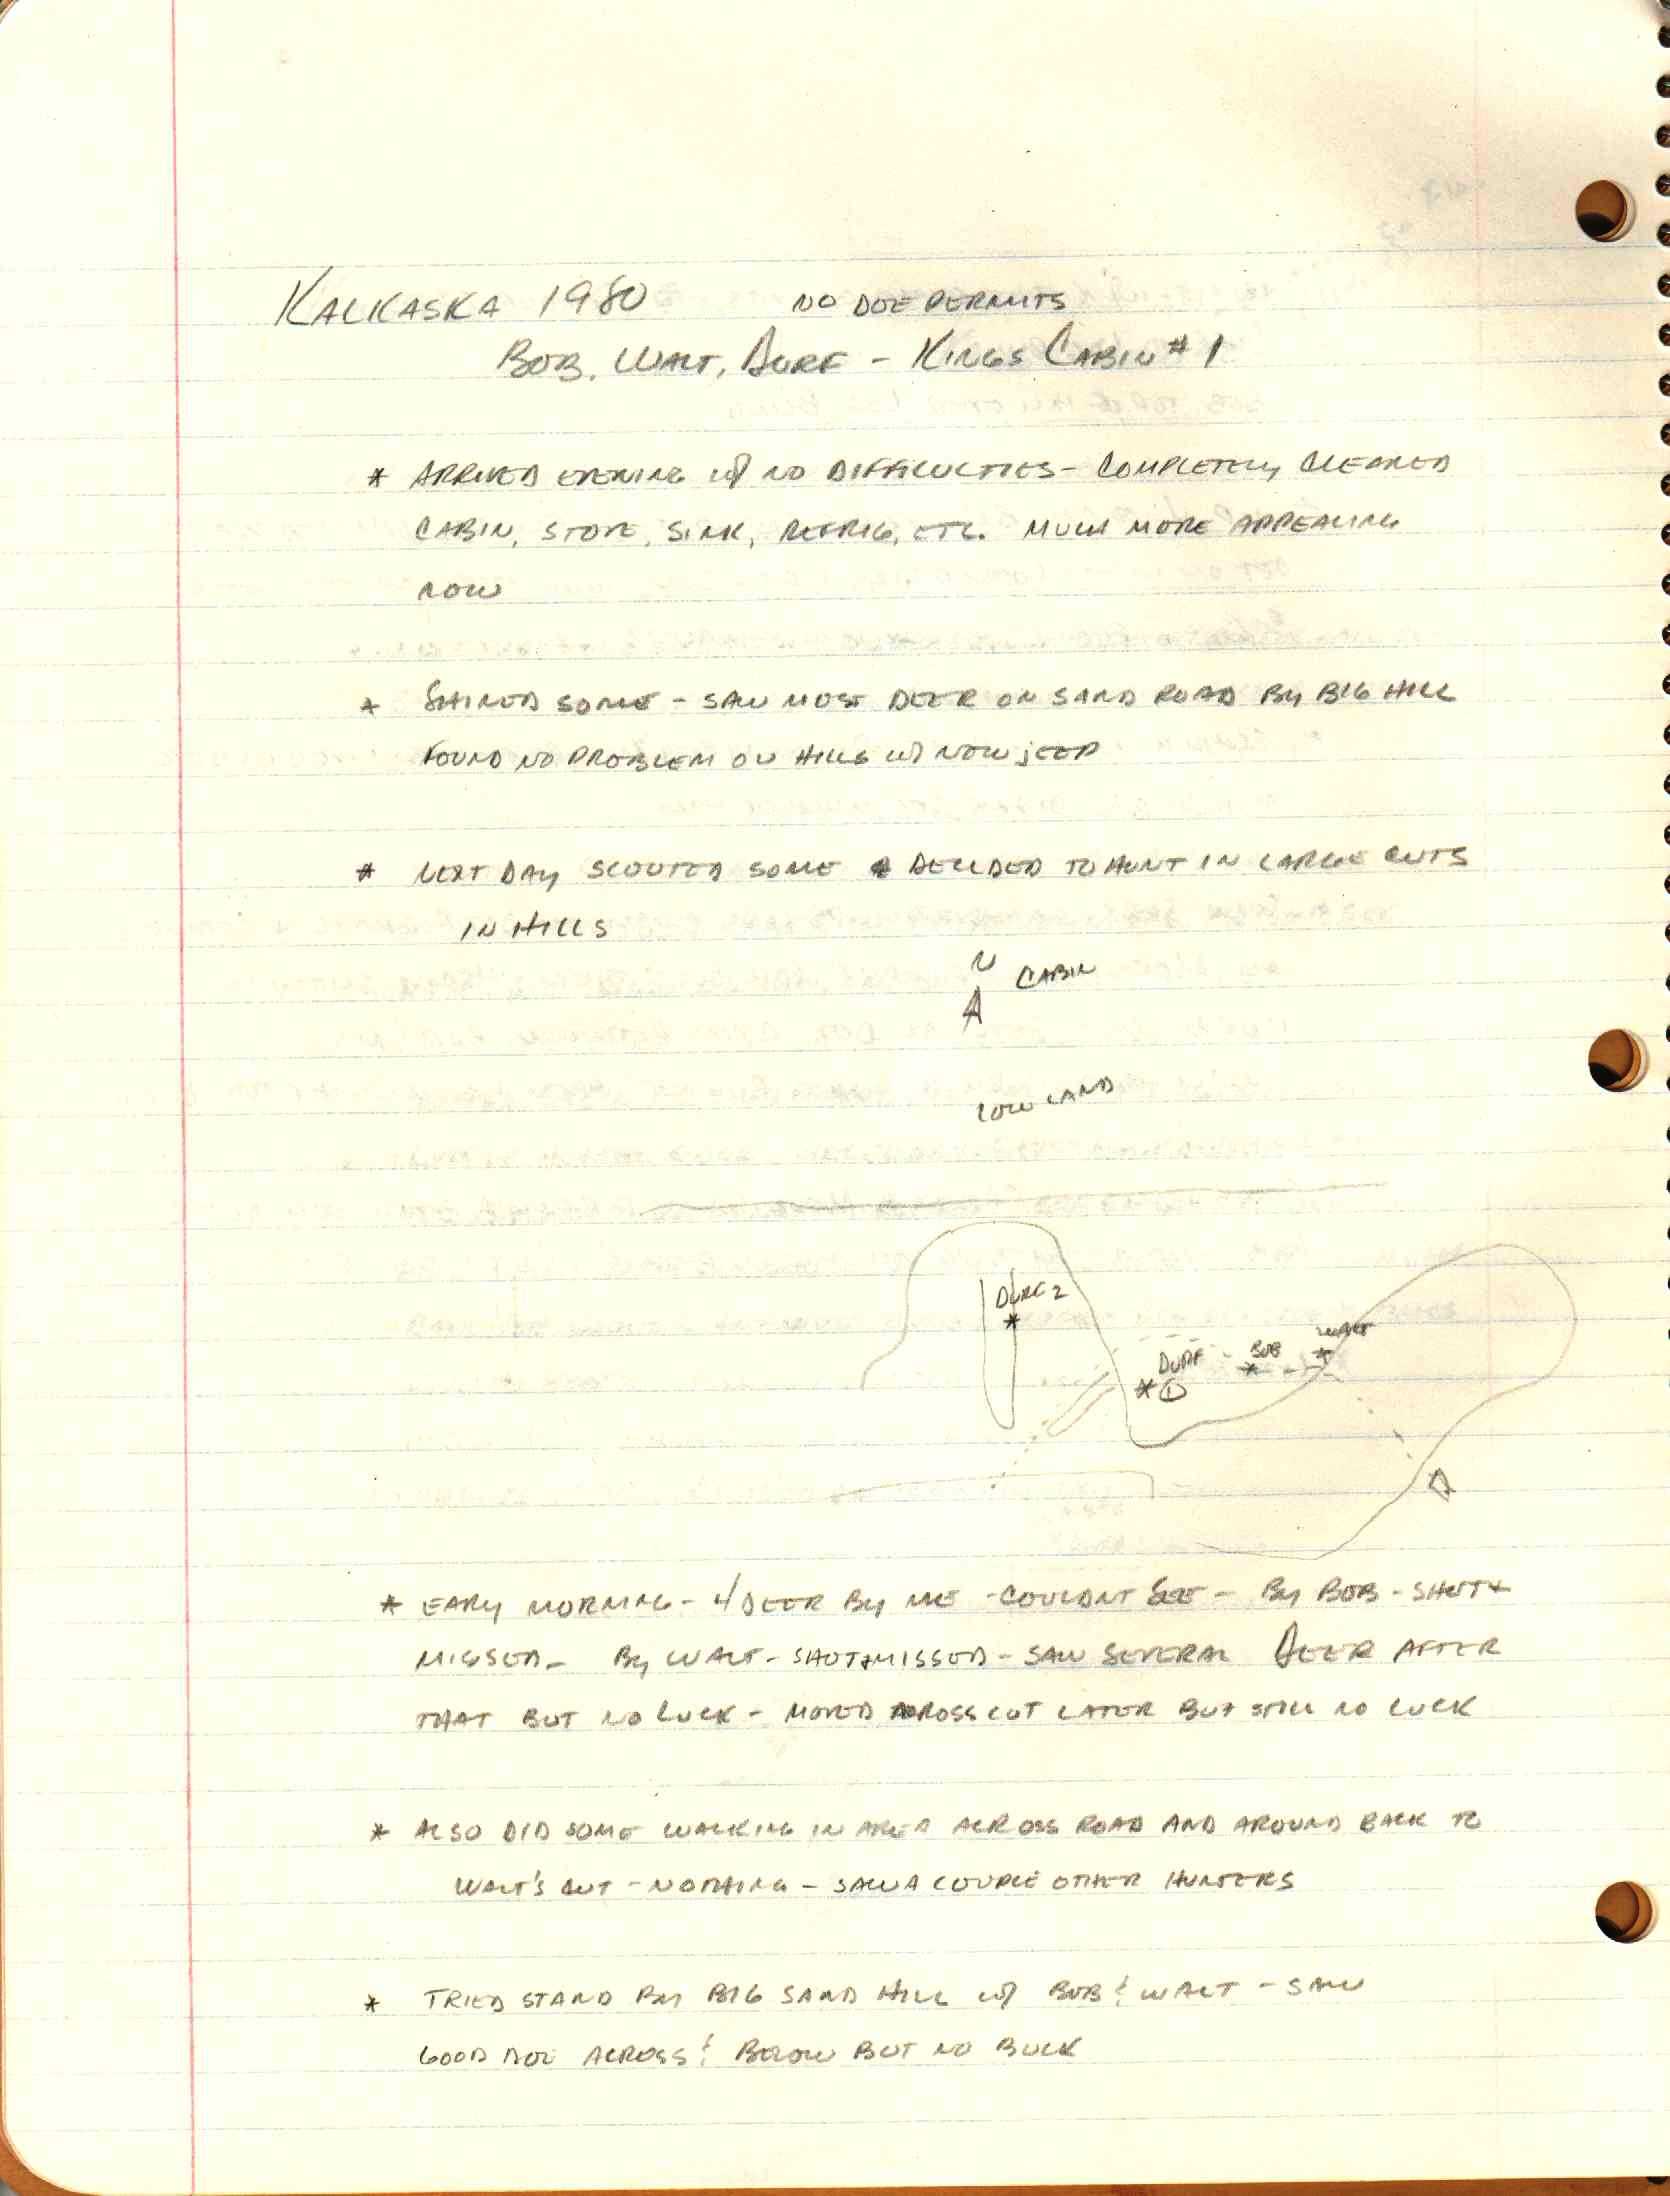 KALKASKA 1980 NO DOE PERMITS
BOB, WALT, DURF - KINGS CABIN #1
* ARRIVED EVENING W/ NO DIFFICULTIES - COMPLETELY CLEANED
CABIN, STOVE, SINK, REFRIG, ETC. MUCH MORE APPEALING
NOW
* SHINED SOME - SAW MOST DEER ON SAND ROAD BY BIG HILL
FOUND NO PROBLEM ON HILLS W/ NOW JEEP
* NEXT DAY SCOUTED SOME & DECIDED TO HUNT IN LARGE CUTS
IN HILLS
N
CABIN
LOW LAND
DURF 2
*
DURF BOB WALT
* 1 * *
* EARY MORNING - 4 DEER BY ME - COULDNT SEE - BY BOB - SHOT +
MISSED - BY WALT - SHOT + MISSED - SAW SEVERAL DEER AFTER
THAT BUT NO LUCK - MOVED ACROSS CUT LATER BUT STILL NO LUCK
* ALSO DID SOME WALKING IN AREA ACROSS ROAD AND AROUND BACK TO
WALT'S CUT - NOTHING - SAW A COUPLE OTHER HUNTERS
* TRIED STAND BY BIG SAND HILL W/ BOB & WALT - SAW
GOOD DOE ACROSS & BELOW BUT NO BUCK